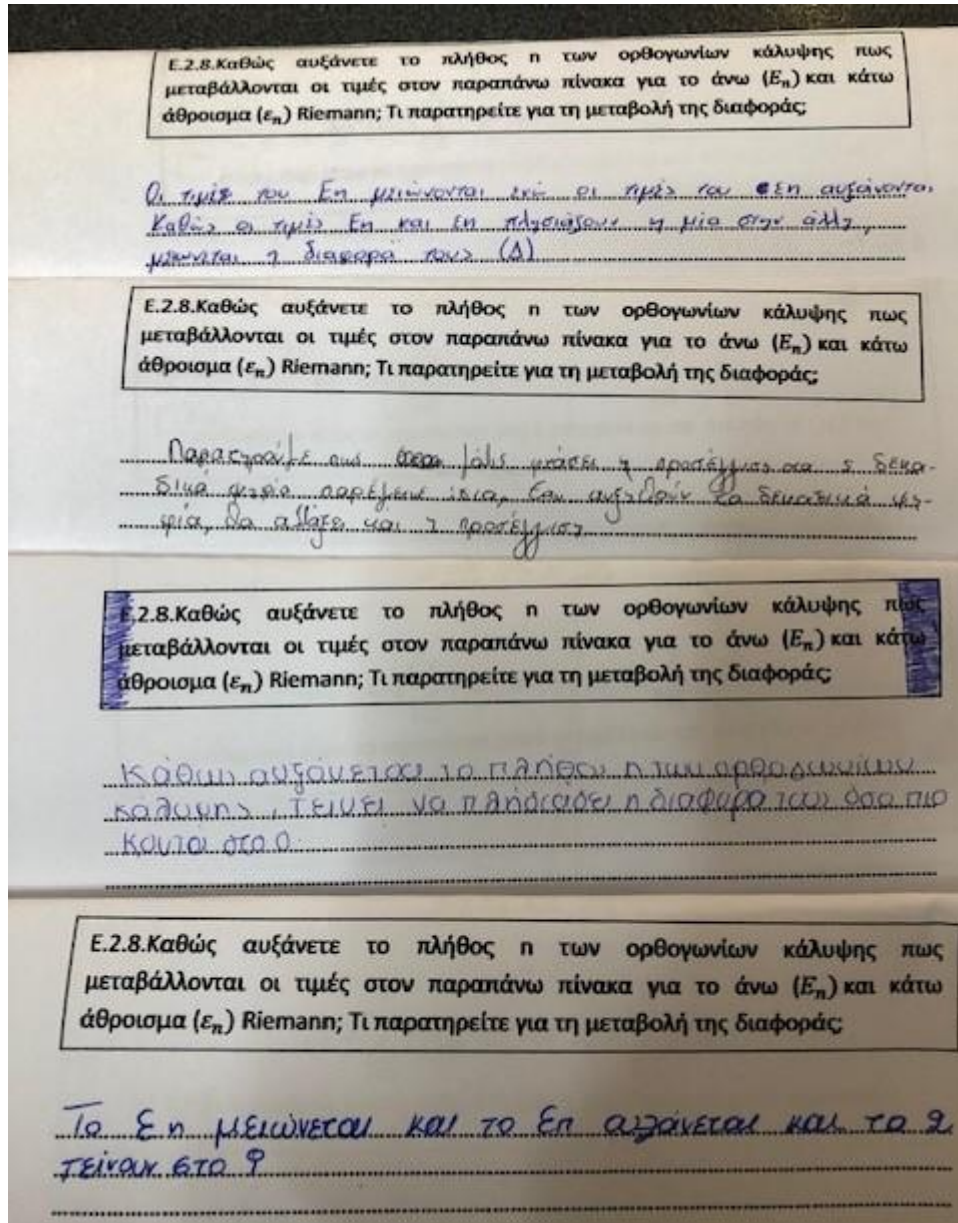 Ε.2.8.Καθώς αυξάνετε το πλήθος n των ορθογωνίων κάλυψης πως
μεταβάλλονται οι τιμές στον παραπάνω πίνακα για το άνω (Eₙ) και κάτω
άθροισμα (εₙ) Riemann; Τι παρατηρείτε για τη μεταβολή της διαφοράς;
Οι τιμές του Εη μειώνονται ενώ οι τιμές του εη αυξάνονται
Καθώς οι τιμές Εη και εη πλησιάζουν η μία στην άλλη,
μειώνεται η διαφορά τους (Δ)
Ε.2.8.Καθώς αυξάνετε το πλήθος n των ορθογωνίων κάλυψης πως
μεταβάλλονται οι τιμές στον παραπάνω πίνακα για το άνω (Eₙ) και κάτω
άθροισμα (εₙ) Riemann; Τι παρατηρείτε για τη μεταβολή της διαφοράς;
Παρατηρούμε πως μόλις φτάσει η προσέγγιση στα 5 δεκα-
δικά ψηφία παρέμεινε ίδια, Εαν αυξηθούν τα δεκαδικά ψη-
φία, θα αλλάξει και η προσέγγιση
Ε.2.8.Καθώς αυξάνετε το πλήθος n των ορθογωνίων κάλυψης πως
μεταβάλλονται οι τιμές στον παραπάνω πίνακα για το άνω (Eₙ) και κάτω
άθροισμα (εₙ) Riemann; Τι παρατηρείτε για τη μεταβολή της διαφοράς;
Καθώς αυξάνεται το πλήθος η των ορθογωνίων
κάλυψης, τείνει να πλησιάσει η διαφορά τους όσο πιο
κοντά στο 0
Ε.2.8.Καθώς αυξάνετε το πλήθος n των ορθογωνίων κάλυψης πως
μεταβάλλονται οι τιμές στον παραπάνω πίνακα για το άνω (Eₙ) και κάτω
άθροισμα (εₙ) Riemann; Τι παρατηρείτε για τη μεταβολή της διαφοράς;
Το Εη μειώνεται και το εη αυξάνεται και τα 2
τείνουν στο